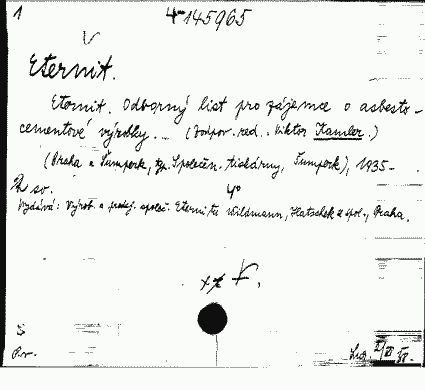 1
4-145965
Eternit.
Eternit. Odborný list pro zájemce o asbesto-
cementové výrobky. _ (Zodpov. red. Viktor Kamler.)
(Praha a Šumperk, typ. Společen. tiskárny, Šumperk), 1935-
4°
Vydává: Výrob. a prodej. společ. Eternitu Wildmann, Hatschek a spol., Praha.